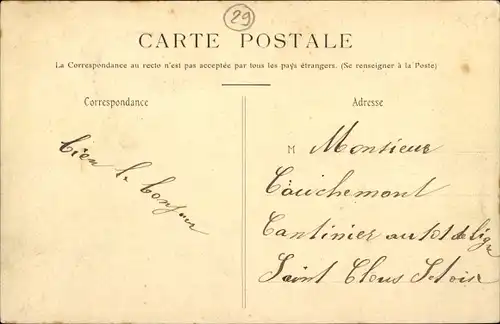 29
CARTE POSTALE
La Correspondance au recto n'est pas acceptée par tous les pays étrangers. (Se renseigner à la Poste)
Correspondance
Adresse
bien le bonjour
M Monsieur
Couchemont
Cantinier au 101 de Ligne
Saint Clous